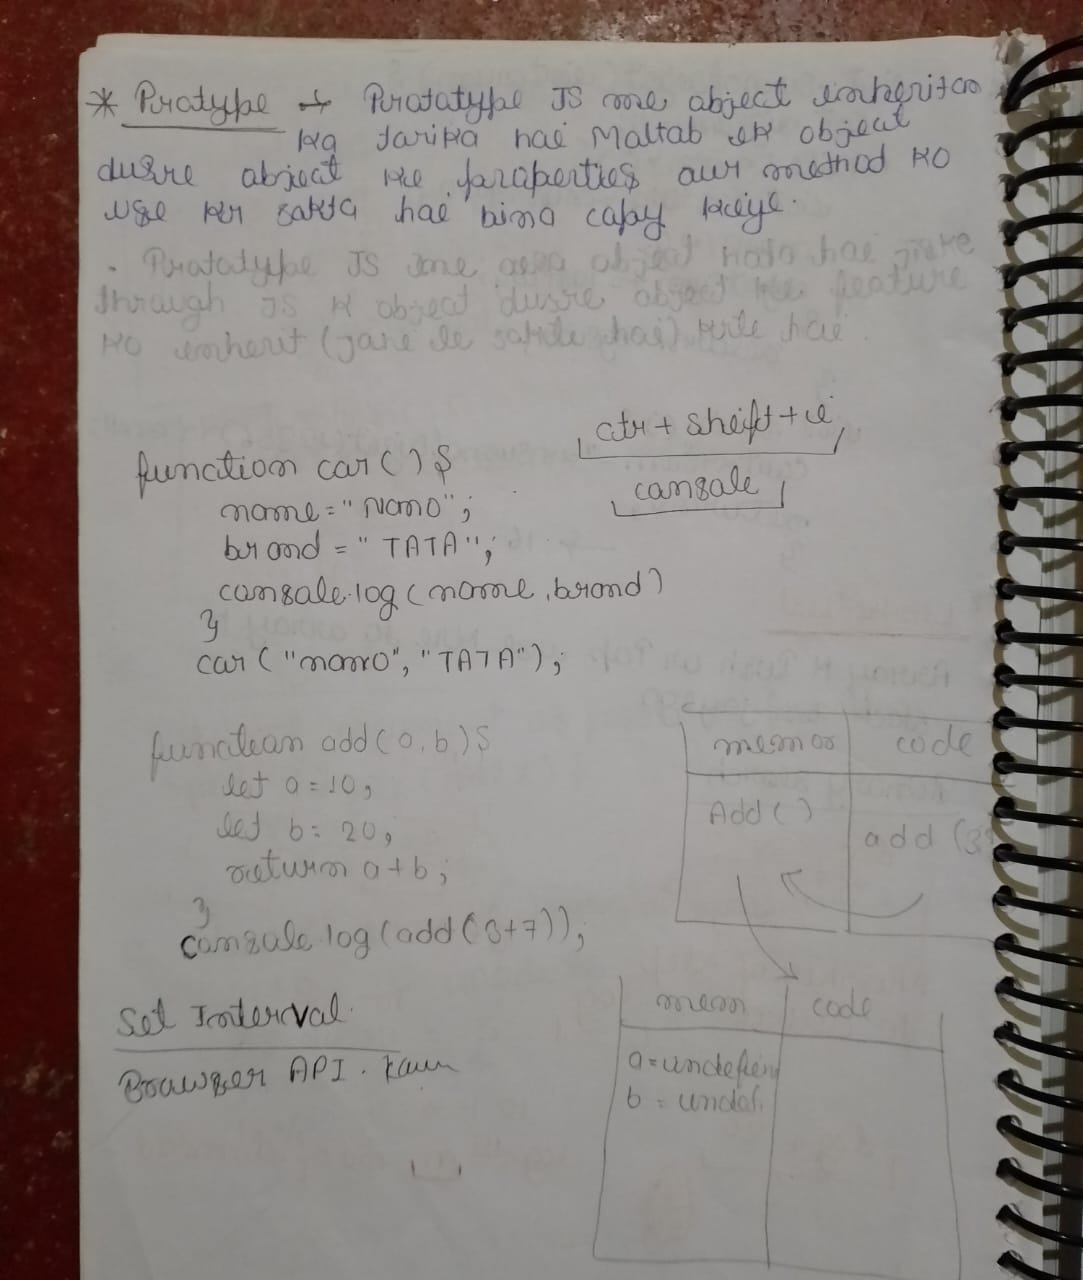 * Protype → Prototype JS me object inheritan
ka tarika hai Maltab ek object
dusre object ke properties aur method ko
use kr sakta hai bina copy kiye.
. Prototype JS me aesa object hota hai jiske
through JS k object dusre object ke feature
ko inherit (jane le sakte hai) krte hai.
ctr + shift + i
console
function car() {
name = "Nano";
brand = "TATA";
console.log(name, brand)
}
car("nano", "TATA");
function add(a, b) {
let a = 10;
let b = 20;
return a + b;
}
console.log(add(3+7));
memor code
Add()
add(3
mem code
a = undefin
b = undef.
Set Interval.
Browser API.